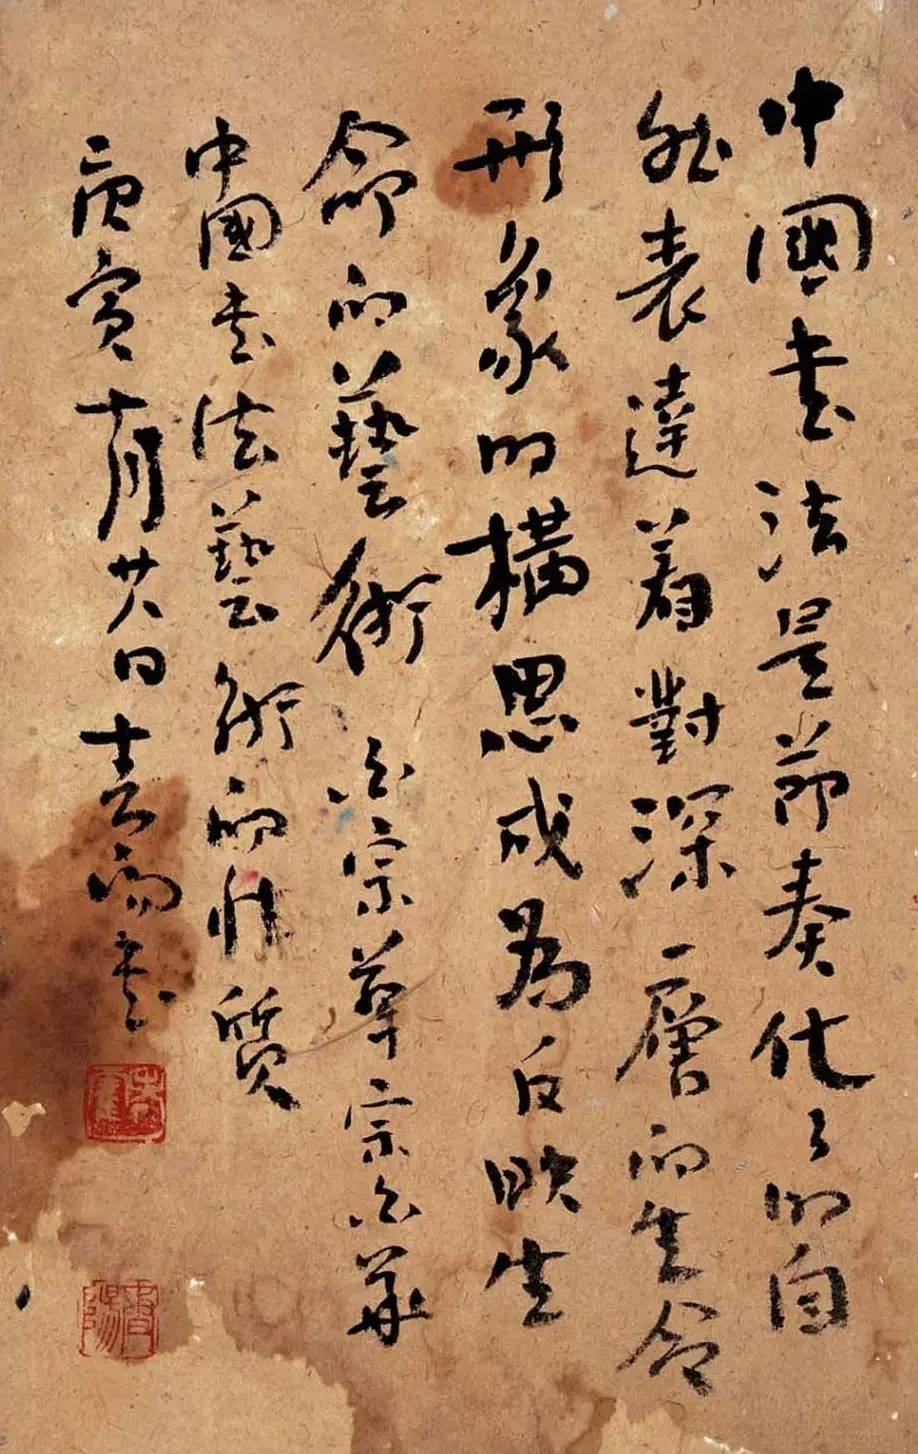 中國書法是節奏化了的自
然表達着對深層的生命
形象的構思成為反映生
命的藝術 白宗華宗白華
中國書法藝術的性質
庚寅十月廿八日書